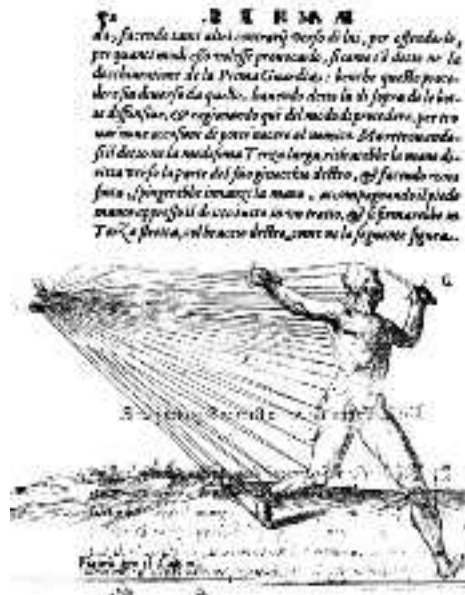 do, facendo tanti altri contrarij verso di lui, per offenderlo,
per quanti modi esso volesse provocarlo, sicome s'è detto ne la
de la Prima Guardia: benche questo proce-
dere sia diverso da quello, havendo detto la di sopra de le bot-
te diffensive, & ragionando qui del modo di procedere, per tro
di poter nocere al nemico. Ma ritornando-
si il detto ne la medesima Terza larga, ritirarebbe la mano di-
ritta verso la parte del suo ginocchio destro, & facendo una
finta, spingerebbe innanzi la mano, accompagnando il piede
manco appresso il diritto tutto in un tratto, & si fermarebbe in
Terza stretta, col braccio destro, come ne la seguente figura.
G.